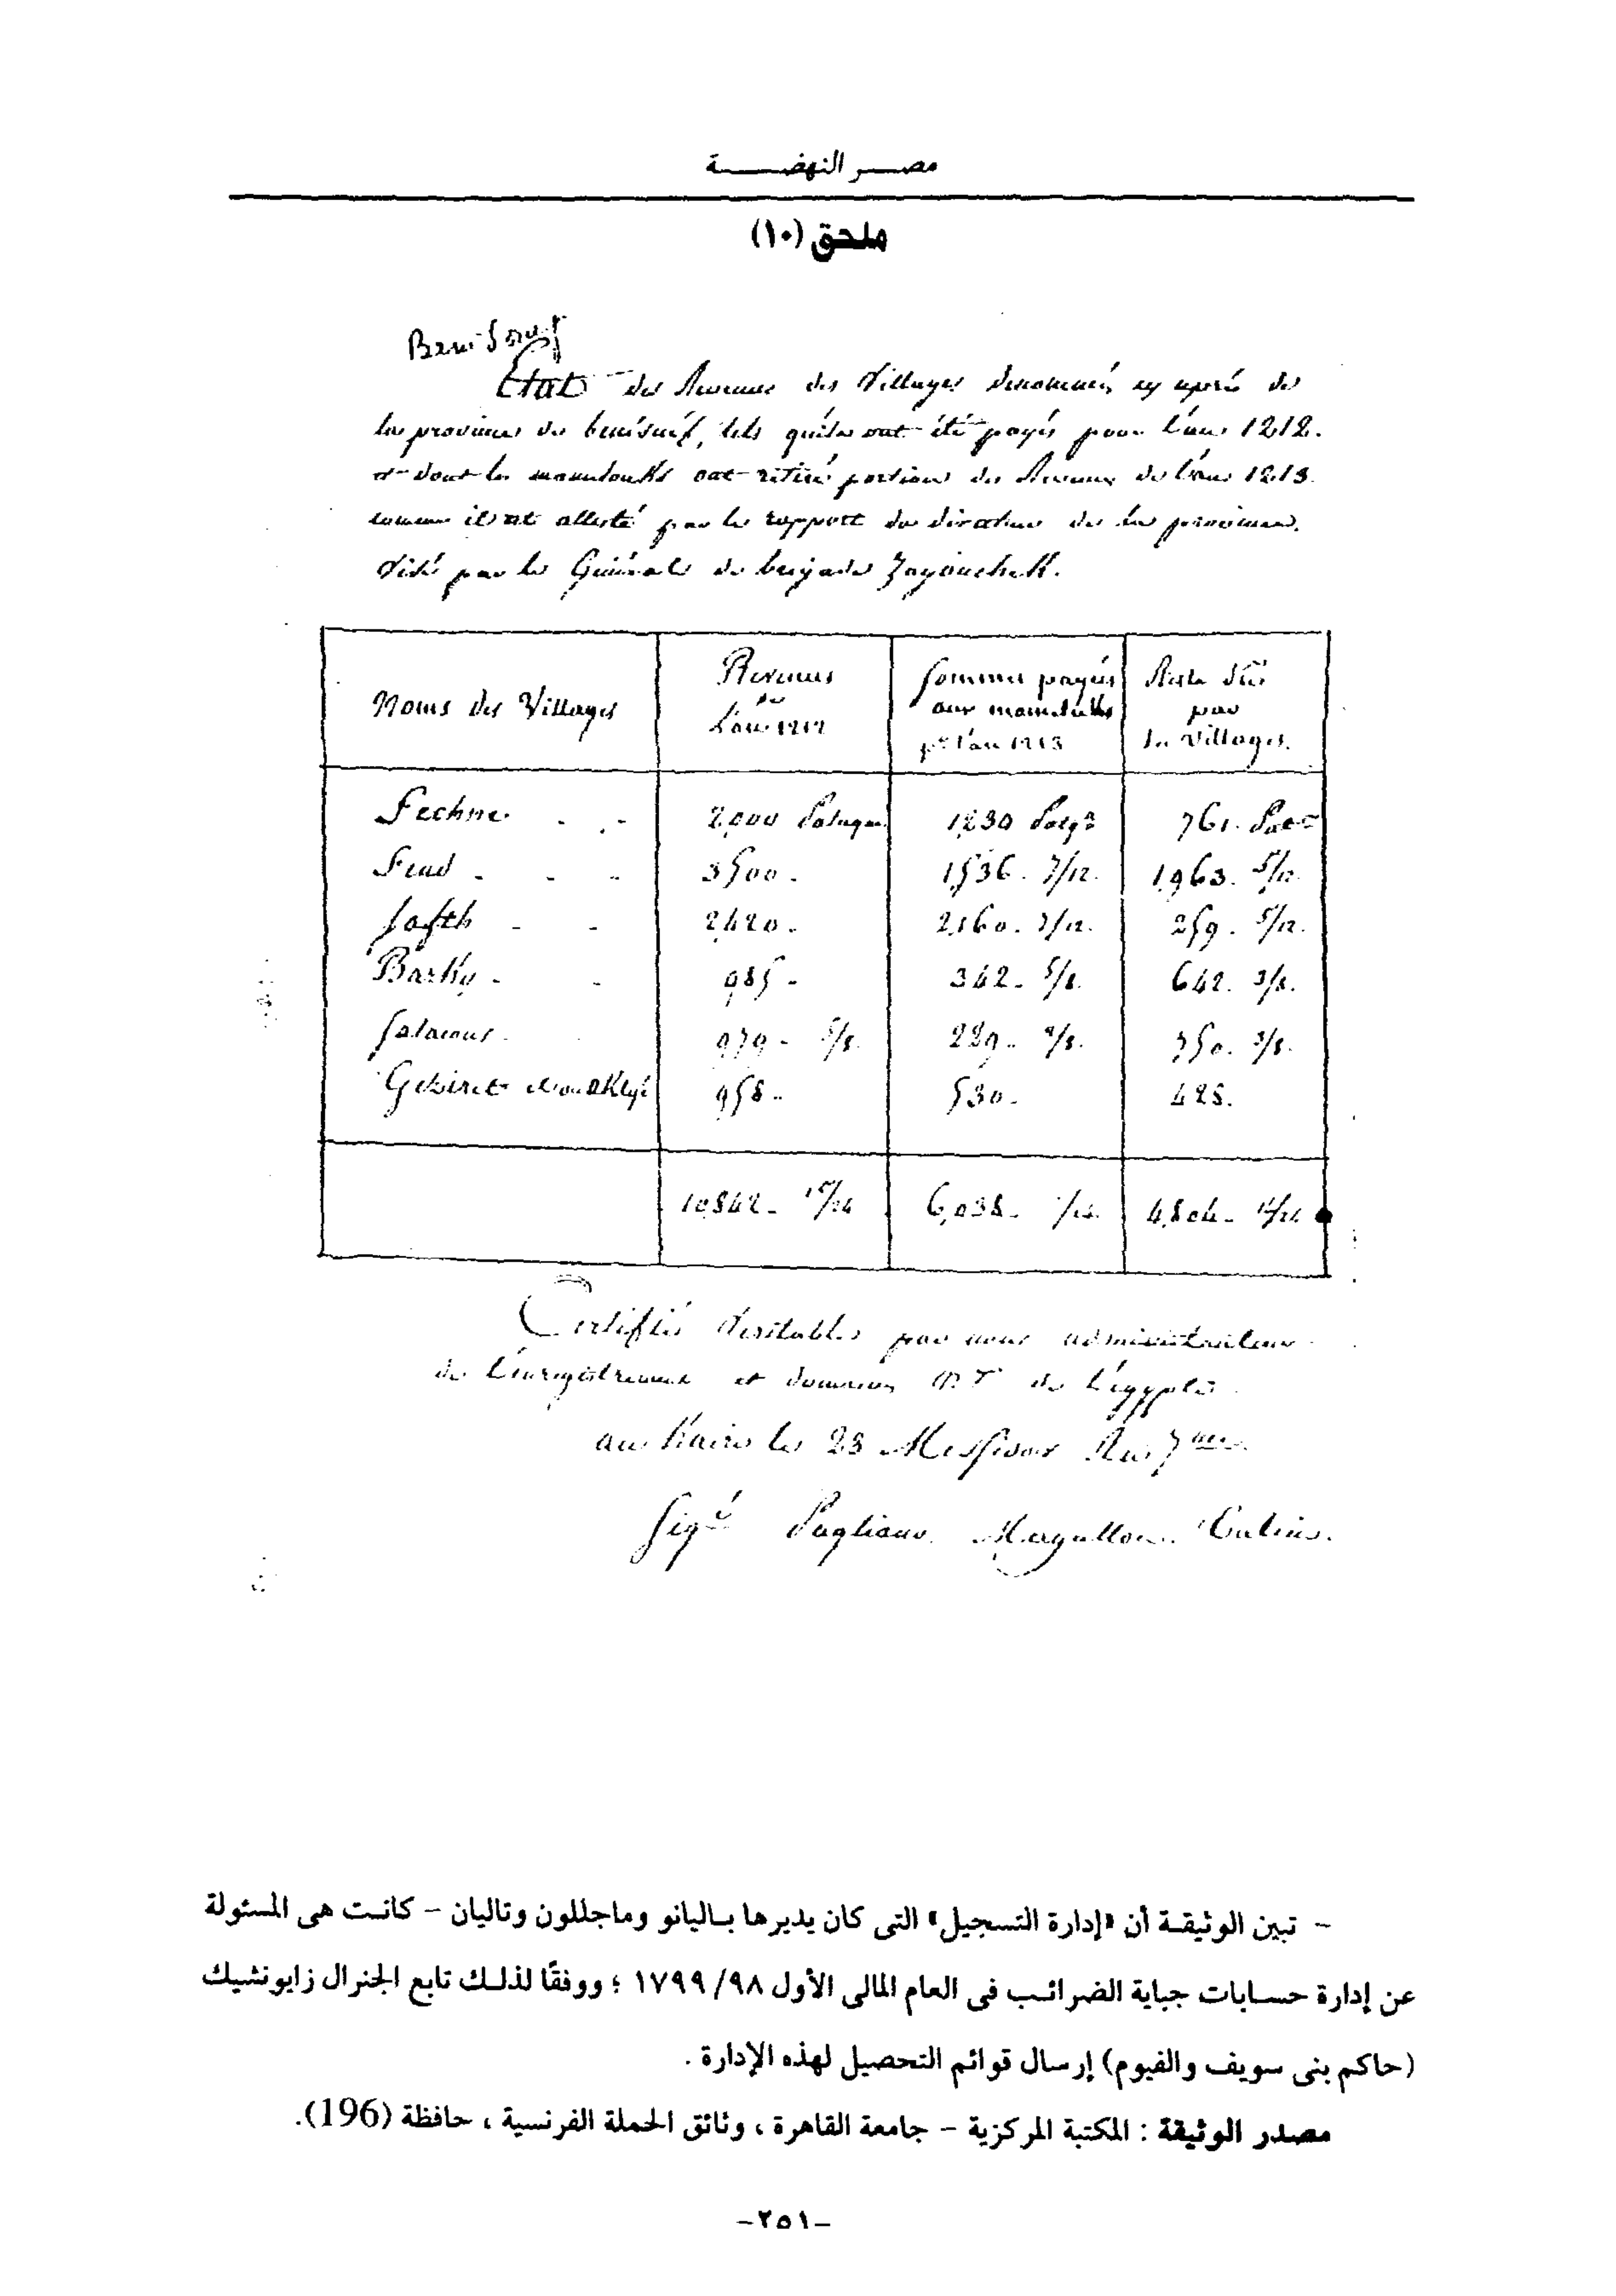 مصر النهضة
ملحق (١٠)
Beni Souef
Etat des Revenus des Villages denommés cy après de
la province de benisuef, tels qu'ils ont été payés pour l'an 1212.
et dont les mamelouks ont retiré portion des Revenus de l'an 1213.
comme il est attesté par le rapport du directeur de la province.
Visé par le Général de brigade Zayouchek.
Noms des Villages
Revenus de l'an 1212
Sommes payés aux mamelukes pr l'an 1213
Reste dû par les Villages.
Fechne 2,000 Pataques 1,230 761.
3500. 1,536. 7/12. 1,963. 5/12.
Safth 2,420. 2,160. 7/12. 259. 5/12.
Barky 985 342. 5/8. 642. 3/8.
979 5/8. 229. 750. 3/8.
Geziret 958 530. 428.
10,842 6,038 4,804
Certifié Véritable par nous administrateurs
de l'enregistrement et domaines de l'égypte
au Kaire le 23 Messidor An 7
Sigé Pagliano. Magallon.
– تبين الوثيقة أن «إدارة التسجيل» التى كان يديرها باليانو وماجللون وتاليان – كانت هى المسئولة
عن إدارة حسابات جباية الضرائب فى العام المالى الأول ٩٨/ ١٧٩٩ ؛ ووفقًا لذلك تابع الجنرال زايونشيك
(حاكم بنى سويف والفيوم) إرسال قوائم التحصيل لهذه الإدارة .
مصدر الوثيقة : المكتبة المركزية – جامعة القاهرة ، وثائق الحملة الفرنسية ، حافظة (196).
–٢٥١–